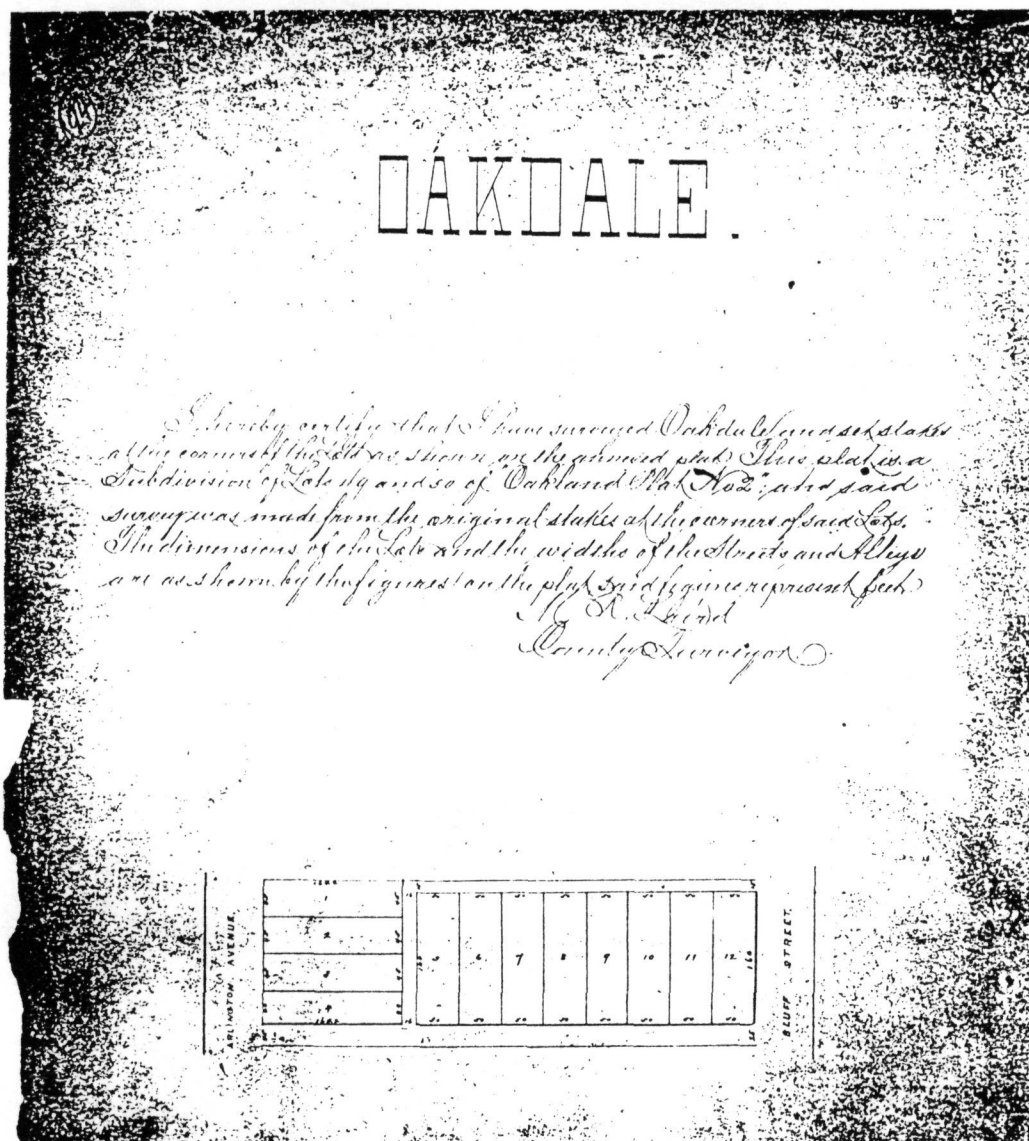 OAKDALE.
I hereby certify that I have surveyed Oakdale and set stakes
at the corners of the Lots as shown on the annexed plat. This plat is a
Subdivision of Lots 49 and 50 of "Oakland Plat No 2", and said
survey was made from the original stakes at the corners of said Lots.
The dimensions of the Lots and the widths of the Streets and Alleys
are as shown by the figures on the plat said figures represent feet
Laird
County Surveyor
ARLINGTON AVENUE.
1
2
3
4
5 6 7 8 9 10 11 12
160
BLUFF STREET.